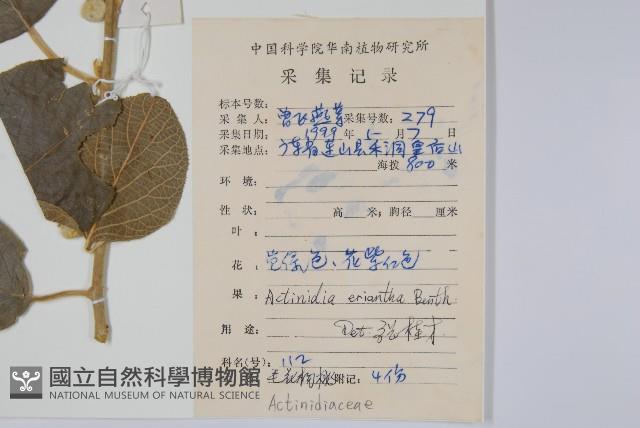 中国科学院华南植物研究所
采集记录
标本号数:
采集人: 曾飞燕等 采集号数: 279
采集日期: 1999 年 5 月 7 日
采集地点: 广东省连山县禾洞皇后山
海拔 800 米
环境:
性状: 高 米; 胸径 厘米
叶:
花: 色、花紫红色
果: Actinidia eriantha Benth
用途: Det. 桂才
科名(号): 112
毛花猕猴桃 附记: 4份
Actinidiaceae
國立自然科學博物館
NATIONAL MUSEUM OF NATURAL SCIENCE